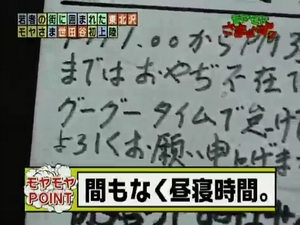 若者の街に囲まれた東北沢
モヤさま世田谷初上陸
.00から
まではおやぢ不在で
グーグータイムで怠けて
よろしくお願い申し上げま
モヤモヤ
POINT
間もなく昼寝時間。